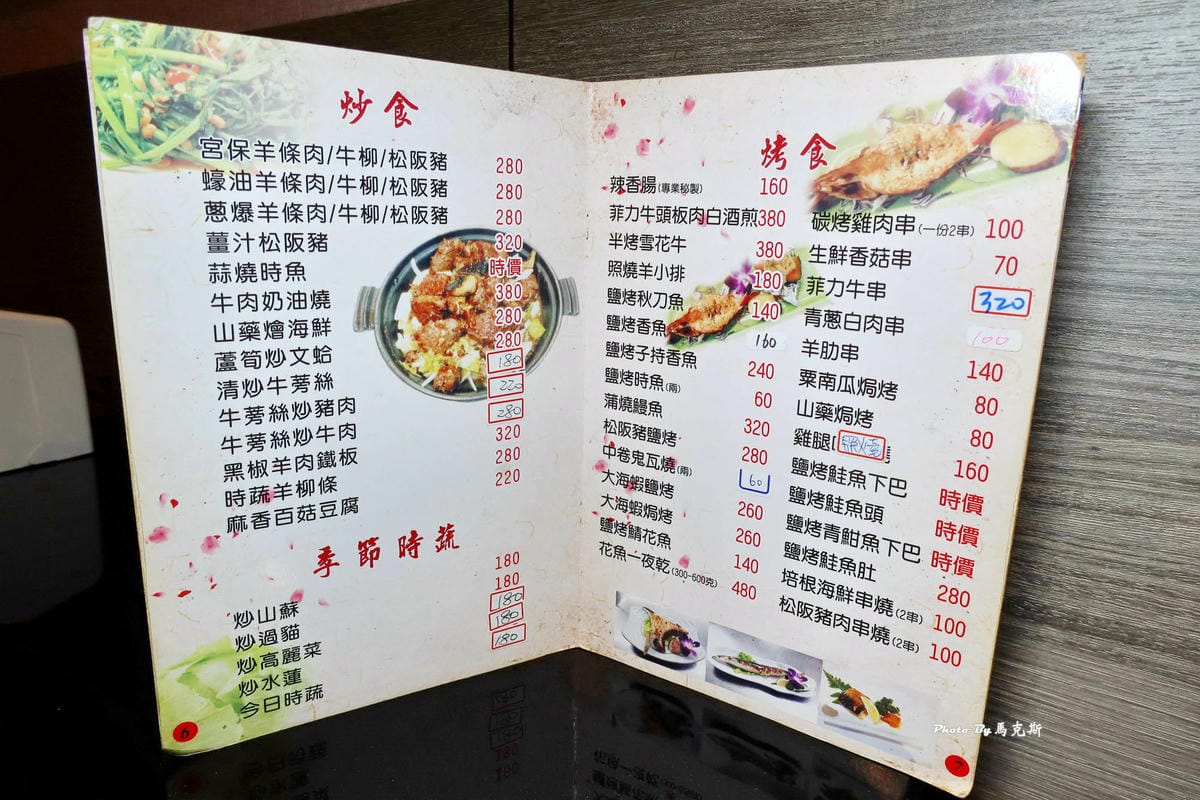 炒食
宮保羊條肉/牛柳/松阪豬 280
蠔油羊條肉/牛柳/松阪豬 280
蔥爆羊條肉/牛柳/松阪豬 280
薑汁松阪豬 320
蒜燒時魚 時價
牛肉奶油燒 380
山藥燴海鮮 280
蘆筍炒文蛤 280
清炒牛蒡絲 180
牛蒡絲炒豬肉 220
牛蒡絲炒牛肉 280
黑椒羊肉鐵板 320
時蔬羊柳條 280
麻香百菇豆腐 220
季節時蔬
炒山蘇 180
炒過貓 180
炒高麗菜 180
炒水蓮 180
今日時蔬 180
6
烤食
辣香腸(專業秘製) 160
菲力牛頭板肉白酒煎 380
半烤雪花牛 380
照燒羊小排 180
鹽烤秋刀魚 140
鹽烤香魚 160
鹽烤子持香魚 240
鹽烤時魚(兩) 60
蒲燒鰻魚 320
松阪豬鹽烤 280
中卷鬼瓦燒(兩) 60
大海蝦鹽烤 260
大海蝦焗烤 260
鹽烤鯖花魚 140
花魚一夜乾(300~600克) 480
碳烤雞肉串(一份2串) 100
生鮮香菇串 70
菲力牛串 320
青蔥白肉串 100
羊肋串 140
粟南瓜焗烤 80
山藥焗烤 80
雞腿 160
鹽烤鮭魚下巴 時價
鹽烤鮭魚頭 時價
鹽烤青魽魚下巴 時價
鹽烤鮭魚肚 280
培根海鮮串燒(2串) 100
松阪豬肉串燒(2串) 100
7
Photo By 馬克斯